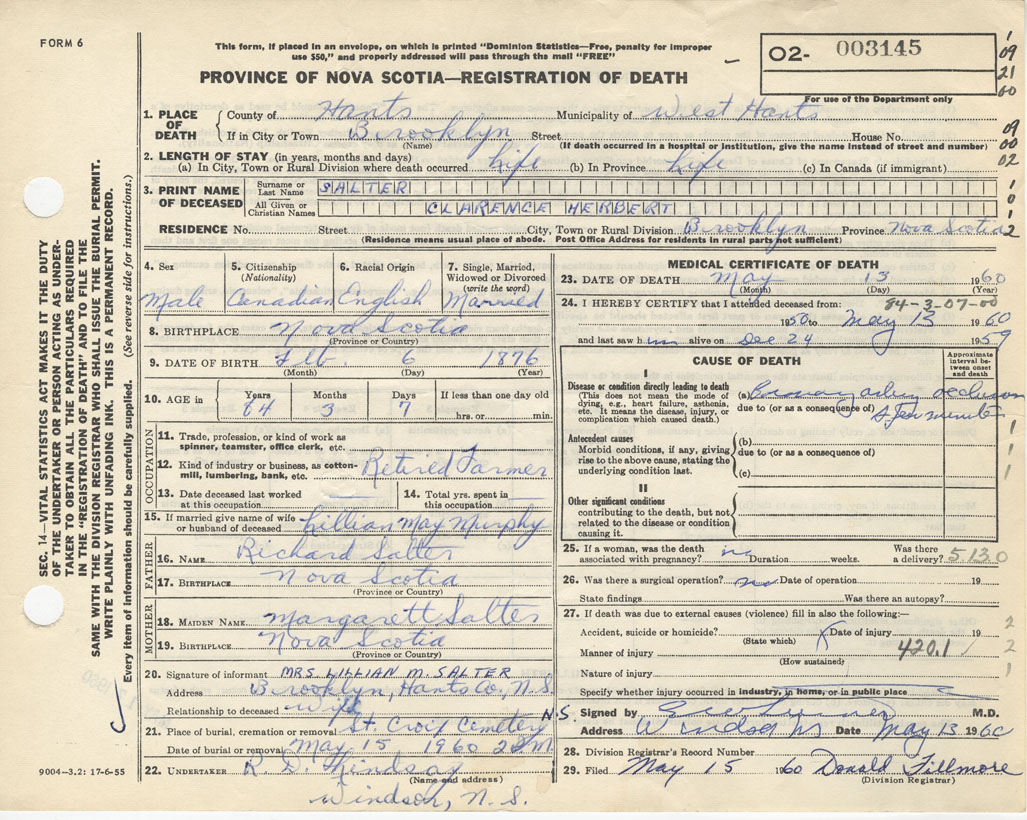 FORM 6
This form, if placed in an envelope, on which is printed "Dominion Statistics—Free, penalty for improper
use $50," and properly addressed will pass through the mail "FREE"
PROVINCE OF NOVA SCOTIA—REGISTRATION OF DEATH
02- 003145
For use of the Department only
1
09
21
00
09
00
02
1
0
1
2
SEC. 14—VITAL STATISTICS ACT MAKES IT THE DUTY
OF THE UNDERTAKER OR PERSON ACTING AS UNDER-
TAKER TO OBTAIN ALL THE PARTICULARS REQUIRED
IN THE "REGISTRATION OF DEATH" AND TO FILE THE
SAME WITH THE DIVISION REGISTRAR WHO SHALL ISSUE THE BURIAL PERMIT.
WRITE PLAINLY WITH UNFADING INK. THIS IS A PERMANENT RECORD.
Every item of information should be carefully supplied. (See reverse side for instructions.)
1. PLACE OF DEATH
County of Hants Municipality of West Hants
If in City or Town Brooklyn Street House No.
(Name) (If death occurred in a hospital or institution, give the name instead of street and number)
2. LENGTH OF STAY (in years, months and days)
(a) In City, Town or Rural Division where death occurred Life (b) In Province Life (c) In Canada (if immigrant)
3. PRINT NAME OF DECEASED
Surname or Last Name SALTER
All Given or Christian Names CLARENCE HERBERT
RESIDENCE No. Street City, Town or Rural Division Brooklyn Province Nova Scotia
(Residence means usual place of abode. Post Office Address for residents in rural parts not sufficient)
4. Sex Male
5. Citizenship (Nationality) Canadian
6. Racial Origin English
7. Single, Married, Widowed or Divorced (write the word) Married
8. BIRTHPLACE Nova Scotia
(Province or Country)
9. DATE OF BIRTH Feb. 6 1876
(Month) (Day) (Year)
10. AGE in Years 84 Months 3 Days 7 If less than one day
hrs. or min.
OCCUPATION
11. Trade, profession, or kind of work as
spinner, teamster, office clerk, etc.
12. Kind of industry or business, as cotton-
mill, lumbering, bank, etc. Retired Farmer
13. Date deceased last worked
at this occupation
14. Total yrs. spent in
this occupation
15. If married give name of wife
or husband of deceased Lillian May Murphy
FATHER
16. NAME Richard Salter
17. BIRTHPLACE Nova Scotia
(Province or Country)
MOTHER
18. MAIDEN NAME Margarett Salter
19. BIRTHPLACE Nova Scotia
(Province or Country)
20. Signature of informant MRS. LILLIAN M. SALTER
Address Brooklyn, Hants Co., N.S.
Relationship to deceased Wife
21. Place of burial, cremation or removal St. Croix Cemetery N.S.
Date of burial or removal May 15 1960
22. UNDERTAKER R. D. Lindsay
(Name and address)
Windsor, N. S.
9004—3.2: 17-6-55
MEDICAL CERTIFICATE OF DEATH
23. DATE OF DEATH May 13 1960
(Month) (Day) (Year)
24. I HEREBY CERTIFY that I attended deceased from: 84-3-07-00
1950 to May 13 1960
and last saw him alive on Dec 24 1959
CAUSE OF DEATH
Approximate interval between onset and death
I
Disease or condition directly leading to death
(This does not mean the mode of
dying, e.g., heart failure, asthenia,
etc. It means the disease, injury, or
complication which caused death.)
(a) Coronary artery occlusion
due to (or as a consequence of) a few minutes
Antecedent causes
Morbid conditions, if any, giving
rise to the above cause, stating the
underlying condition last.
(b)
due to (or as a consequence of)
(c)
1
1
1
II
Other significant conditions
contributing to the death, but not
related to the disease or condition
causing it.
25. If a woman, was the death
associated with pregnancy? Duration weeks. Was there
a delivery? 5130
26. Was there a surgical operation? no Date of operation 19
State findings Was there an autopsy?
27. If death was due to external causes (violence) fill in also the following:—
Accident, suicide or homicide? Date of injury 19 2
(State which)
Manner of injury 420.1 2
(How sustained)
Nature of injury 1
Specify whether injury occurred in industry, in home, or in public place
Signed by M.D.
Address Windsor NS Date May 13 1960
28. Division Registrar's Record Number
29. Filed May 15 1960 Donald Fillmore
(Division Registrar)